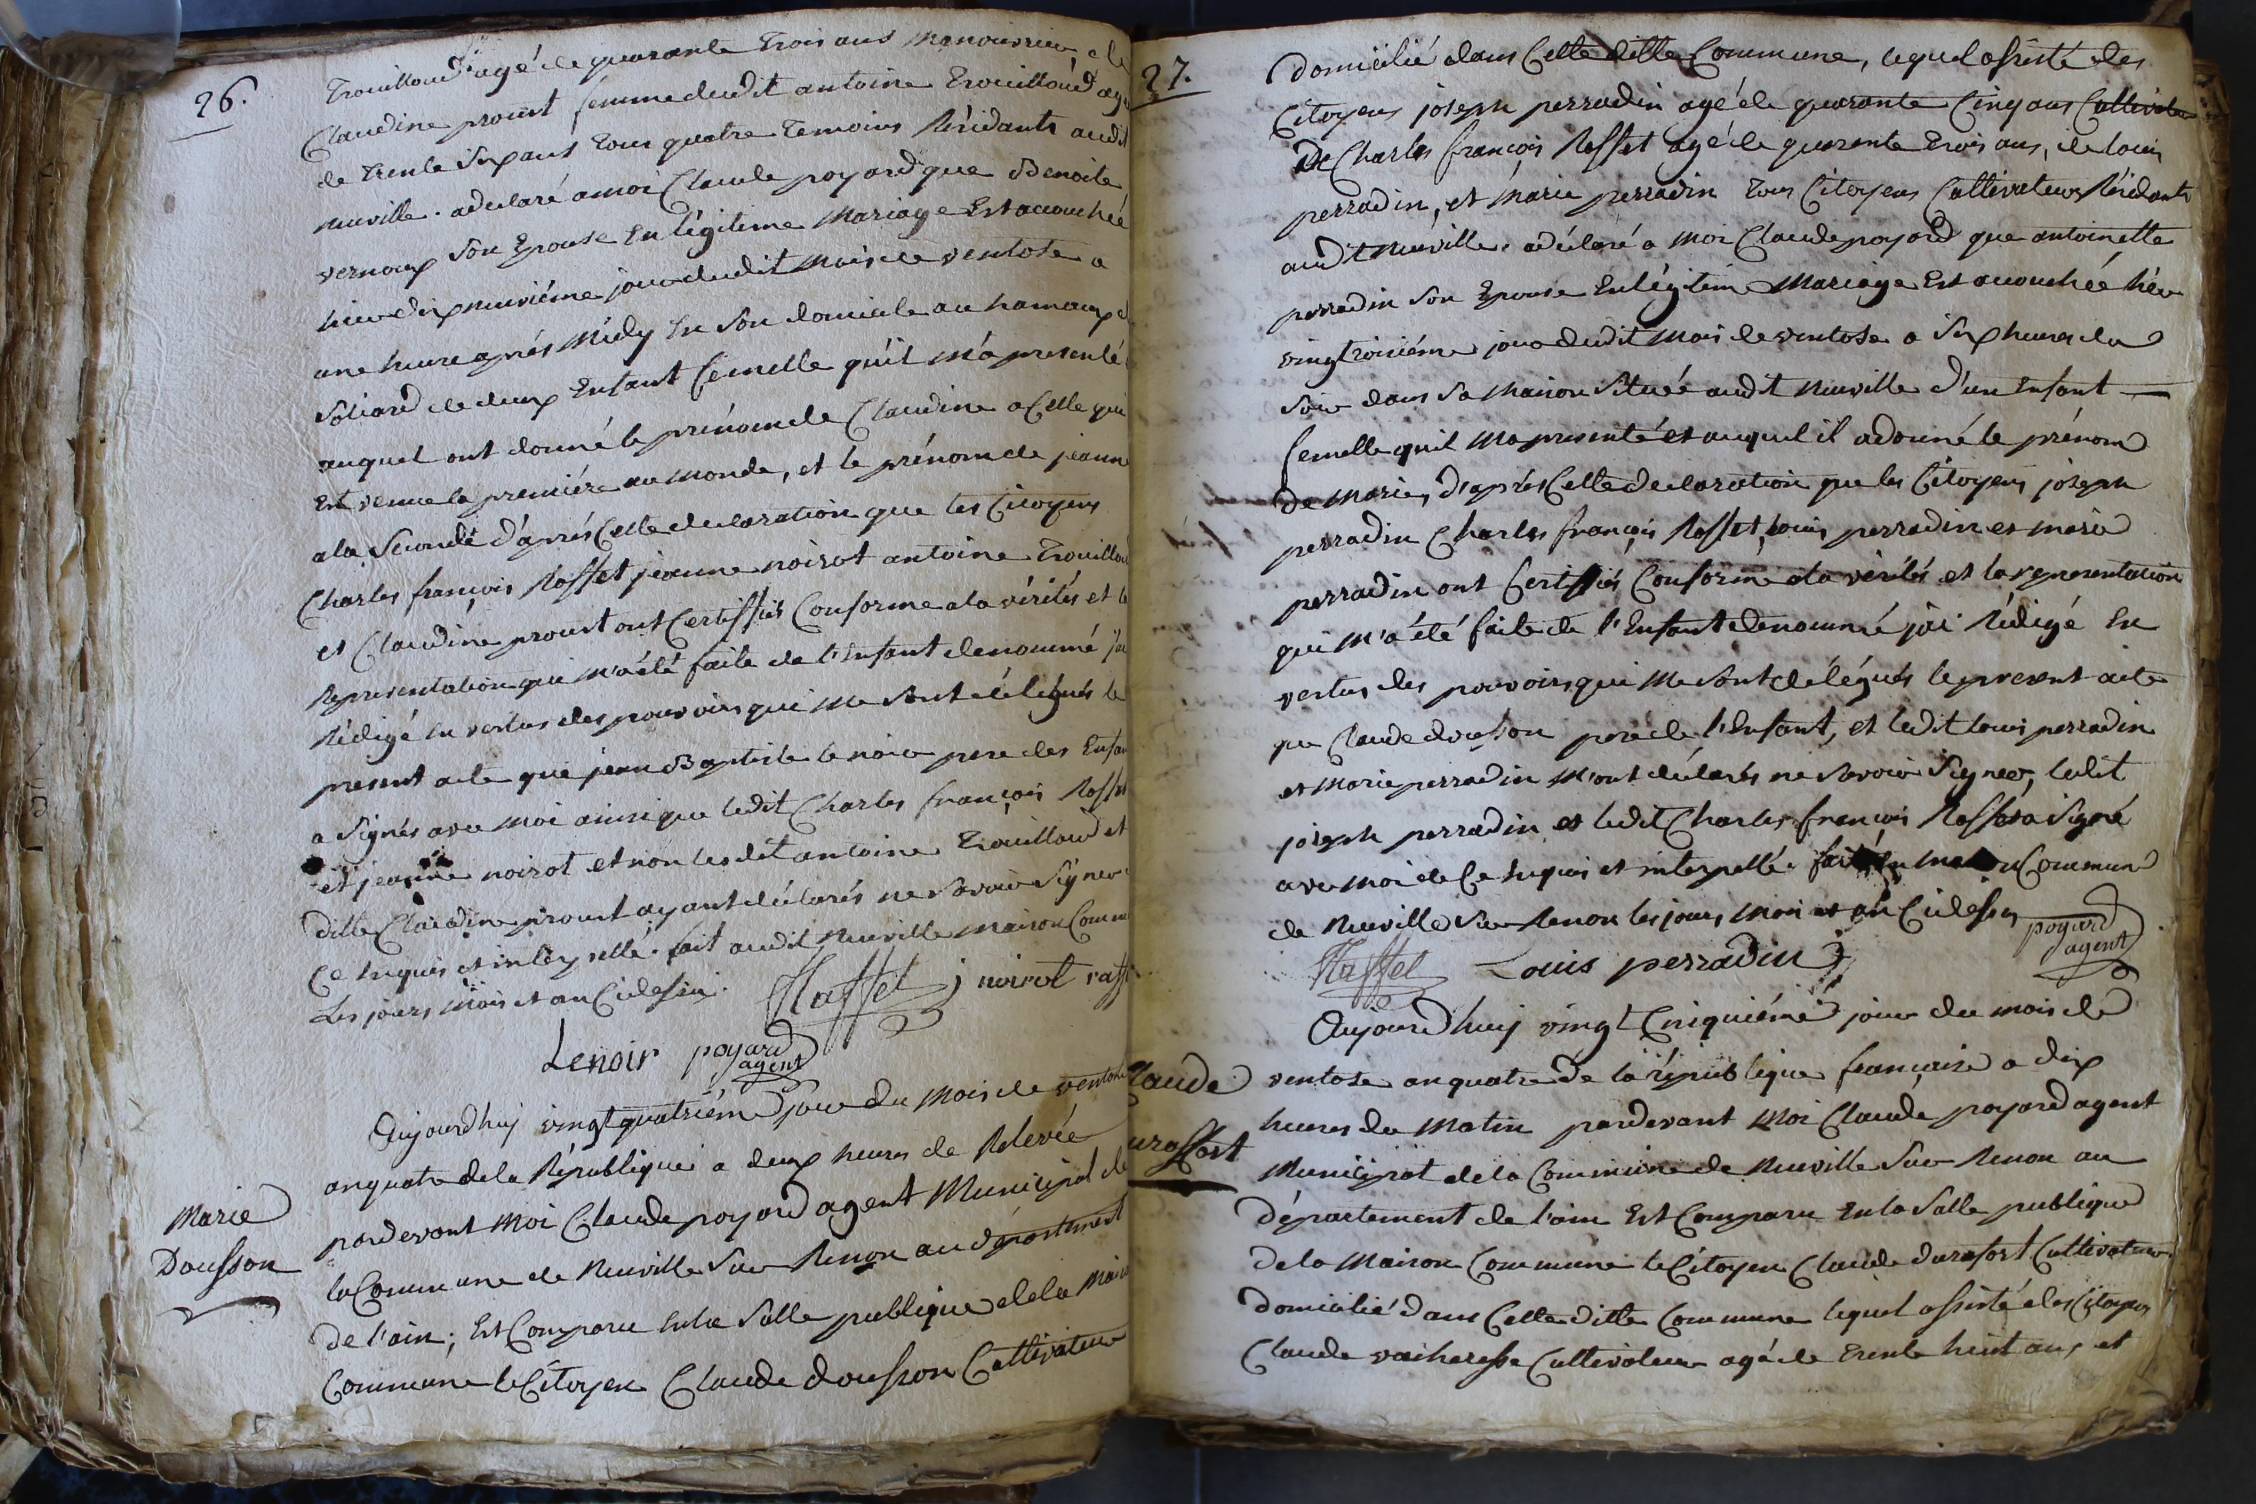 26.
Trouilloud agé de quarante trois ans manouvrier de
Claudine proust femme dudit antoine Trouilloud agé
de trente six ans tous quatre temoins Résidants audit
neuville. a déclaré a moi Claude poyard que Benoite
vernoux son Epouse En légitime Mariage Est accouchée
hier dixneuviéme jour dudit mois de ventose a
une heure aprés Midy En son domicile au hameaux
de deux Enfant femelle qu'il m'a presenté
auquel ont donné le prénom de Claudine a Celle qui
Est venue la premiére au monde, et le prénom de jeanne
a la seconde d'aprés Cette declaration que les Citoyens
Charles françois Raffet jeanne noirot antoine Trouilloud
et Claudine proust ont Certiffiés Conforme a la véritéz et la
Representation qui m'a été faite de l'Enfant denommé j'ai
Rédigé En vertus des pouvoirs qui me sont délégués le
present acte que jean Baptiste le noir pere des Enfan
a signés avec moi ainsi que ledit Charles françois Raffet
et jeanne noirot et non lesdit antoine Trouilloud et
ditte Claudine proust ayant déclarés ne savoir signer
Ce Enquis et interpellé. fait audit Neuville maison Commune
Les jours, mois et an Cidessu.
Raffet j noirot raff
Lenoir poyard
agent
Marie
Dousson
Aujourd'huy vingt quatriéme jour du mois de ventose
an quatre de la République a deux heures de Relevée
pardevant moi Claude poyard agent Municipal de
la Commune de Neuville sur Renon au département
de l'ain; Est Comparu En la salle publique de la Maison
Commune le Citoyen Claude dousson Cultivateur
27.
domicilié dans Cette ditte Commune, lequel assisté des
Citoyens joseph perradin agé de quarante Cinq ans Cultivateur
De Charles françois Raffet agé de quarente trois ans, de louis
perradin, et Marie perradin tous Citoyens Cultivateurs Résidants
audit Neuville. a déclaré a moi Claude poyard que antoinette
perradin son Epouse En légitime Mariage Est accouchée hier
vingtroisiéme jour dudit mois de ventose a six heures du
soir dans sa Maison située audit Neuville d'un Enfant
femelle qu'il m'a presenté et auquel il a donné le prénom
de Marie, d'aprés Cette declaration que les Citoyens joseph
perradin Charles françois Raffet, louis perradin et marie
perradin ont Certiffiés Conforme a la véritéz et la representation
qui m'a été faite de l'Enfant denommé j'ai Rédigé En
vertus des pouvoirs qui me sont délégués le present acte
que Claude dousson pere de l'Enfant, et ledit louis perradin
et Marie perradin m'ont déclarés ne savoir signer, ledit
joseph perradin et ledit Charles françois Raffet a signé
avec moi de Ce Enquis et interpellé. fait En maison Commune
de Neuville sur Renon les jours, mois et an Cidessus
Raffet Louis perradin poyard
agent
Claude
durasfort
Aujourd'huy vingt Cinquiéme jour du mois de
ventose an quatre de la république française a dix
heures du Matin pardevant Moi Claude poyard agent
Municipal de la Commune de Neuville sur Renon au
département de l'ain Est Comparu En la salle publique
de la Maison Commune le Citoyen Claude durafort Cultivateur
domicilié dans Cette ditte Commune lequel assisté des Citoyens
Claude vacheresse Cultivateur agé de trente huit ans, et